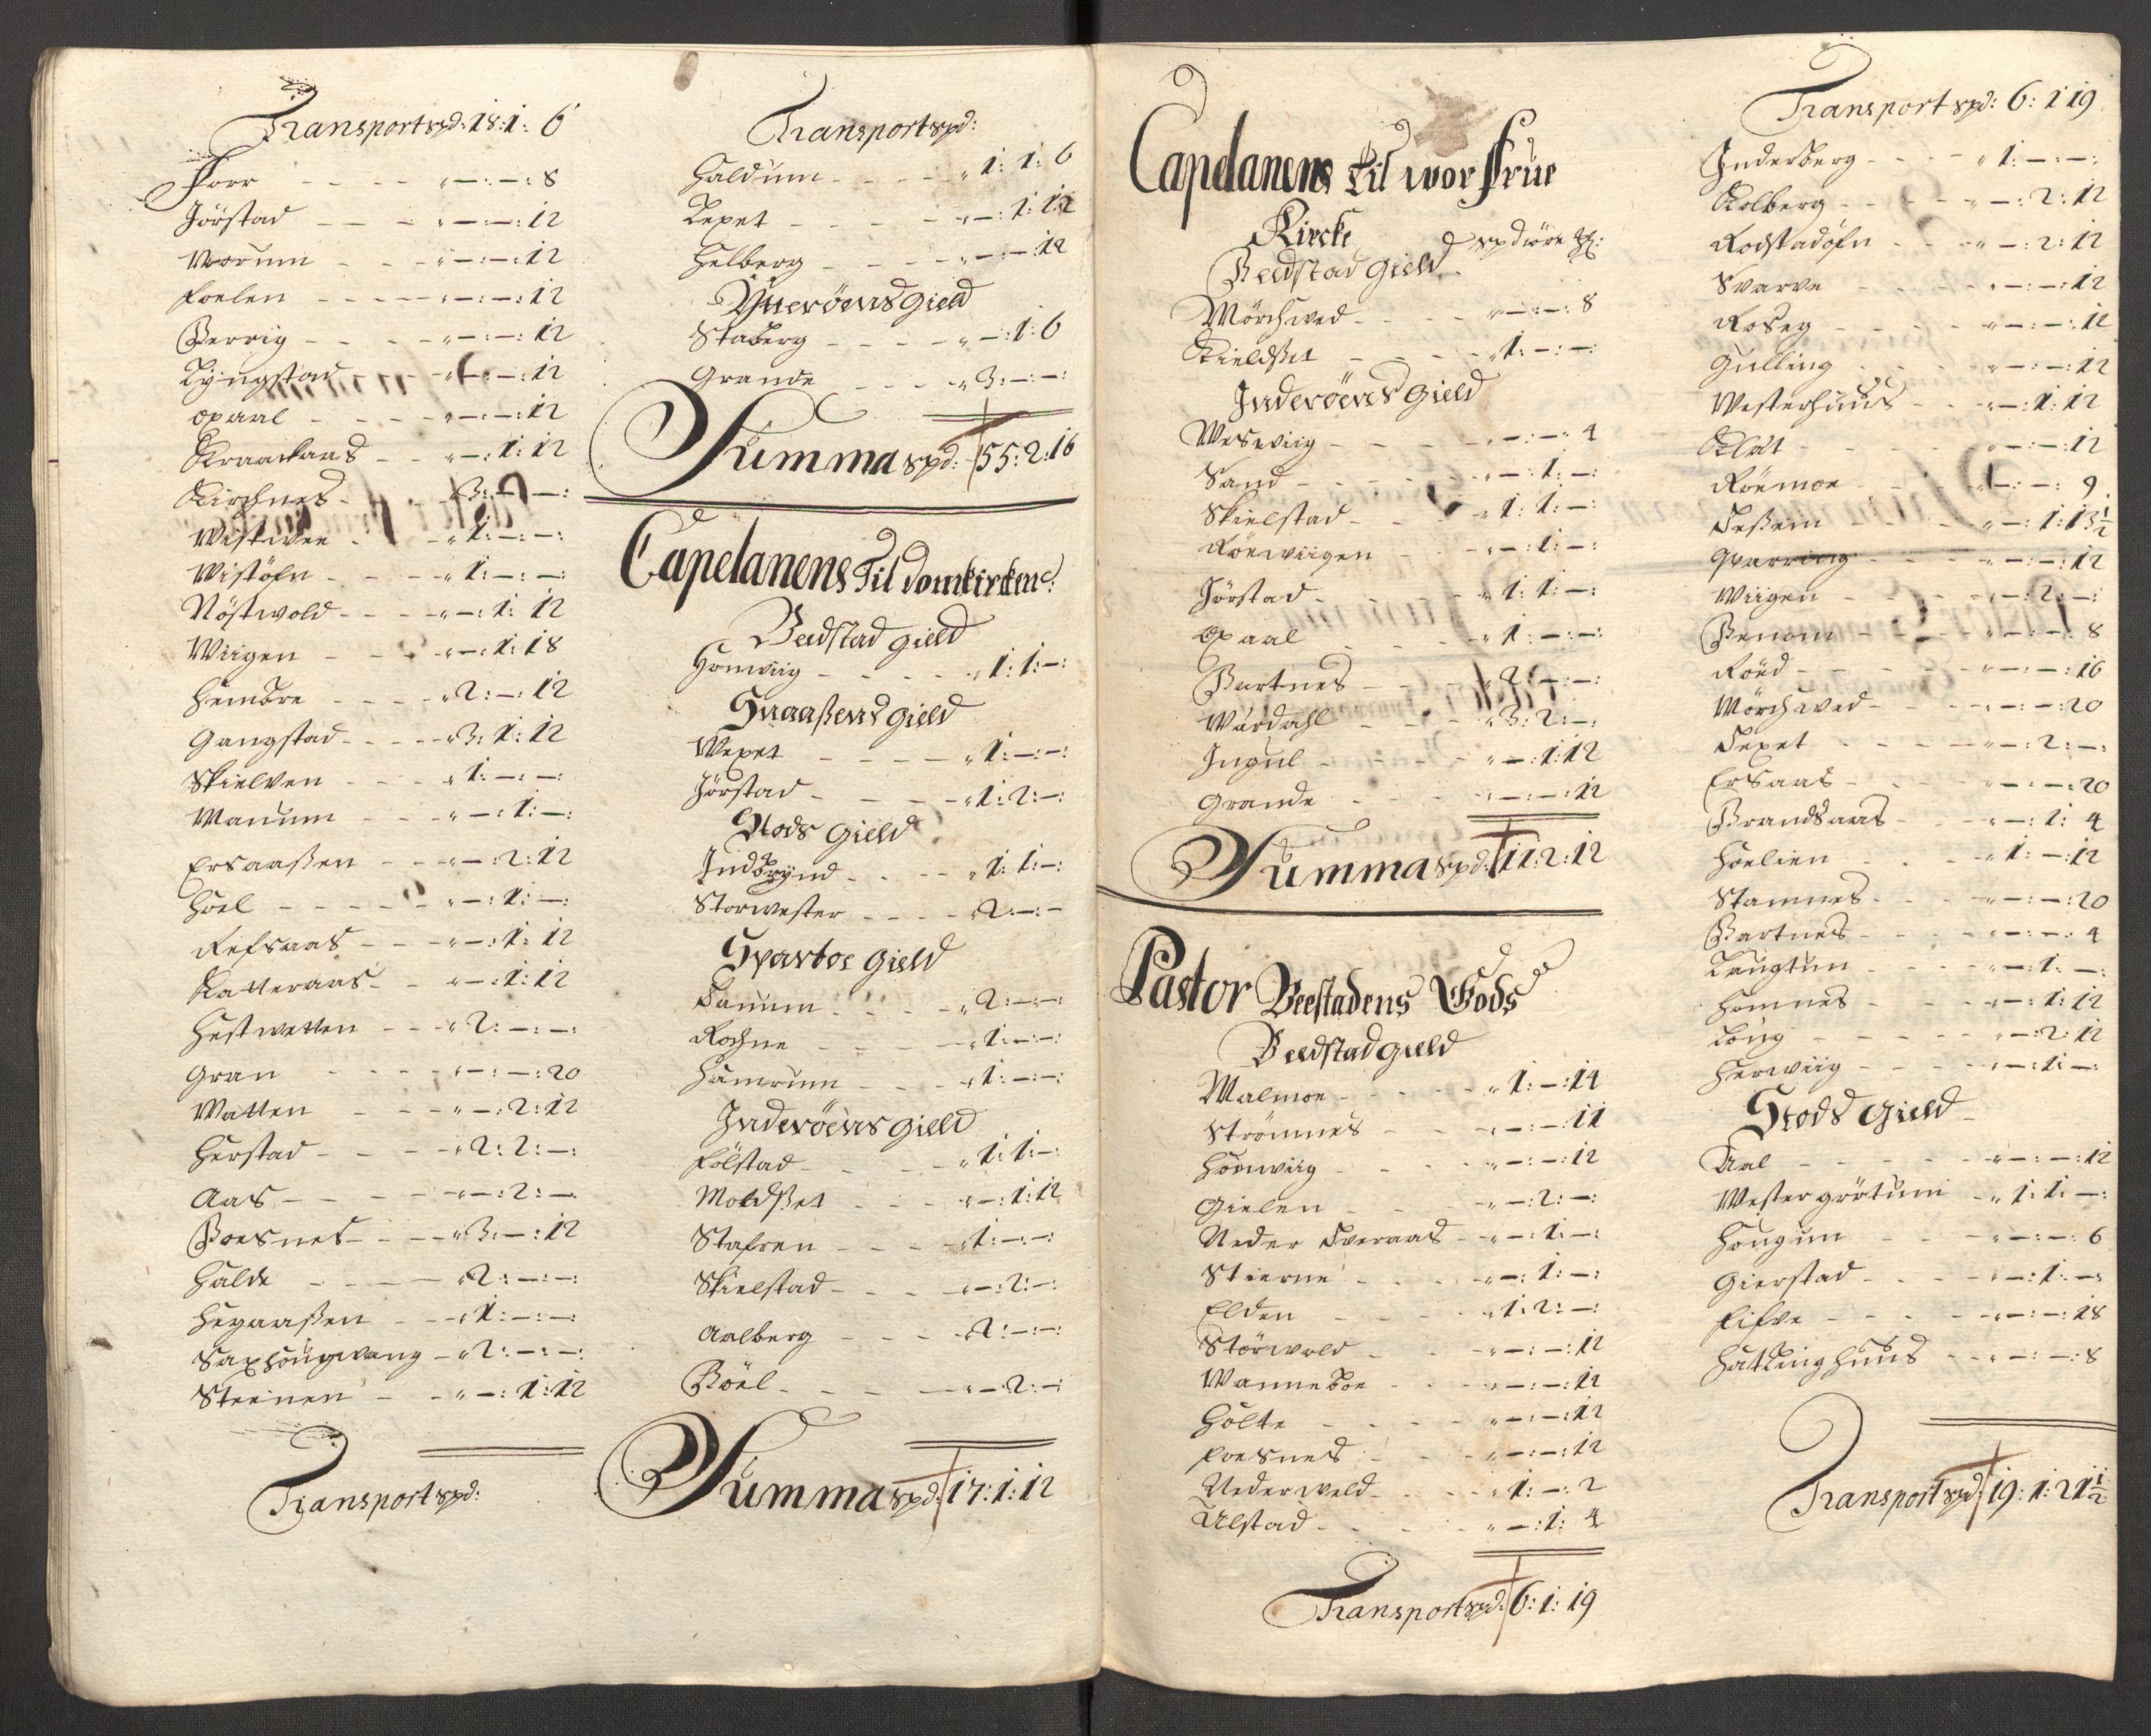 Transport spd: 18: 1: 6
Forr - - - - „ - : - : 8
Jörstad - - - „ - : - : 12
Worum - - „ - : - : 12
Foelen - - - - „ - : - : 12
Berrig - - - - „ - : - : 12
Lyngstad - - : - : 12
Opaal - - - - „ - : - : 12
Kraackaas - - „ - : 1: 12
Kirchnes - „ 3: - : - :
Wistwee - - „ 1: - : - :
Wistöfn - - - „ 1: - : - :
Nöstwold - - - „ - : 1: 12
Wiigen - - - „ - : 1: 18
Hembre - - - „ 2: - : 12
Gangstad - - - „ 3: 1: 12
Skielven - - - „ 1: - : - :
Wanum - - - „ - : 1: - :
Ersaaßen - - „ - : 2: 12
Hoel - - - - - „ - : 1: - :
Refsaas - - - „ - : 1: 12
Katteraas - - „ - : 1: 12
Hestwetten - - „ 2: - : - :
Gran - - - - „ - : - : 20
Watten - - - „ - : 2: 12
Herstad - - - „ 2: 2: - :
Aas - - - - „ - : 2: - :
Boesnes - - - „ 3: - : 12
Halde - - - - „ 2: - : - :
Hegaaßen - - „ 1: - : - :
Saxhougwang - „ 2: - : - :
Steinen - - „ - : 1: 12
Transport spd:
Transport spd:
Haldum - - - - „ 1: 1: 6
Lexet - - - - „ - : 1: 12
Helberg - - - - „ - : - : 12
Ytteröens Gield
Staberg - - - - „ - : 1: 6
Grande - - - „ 3: - : - :
Summa spd: 55: 2: 16
Capelanens Til Domkircken:
Beedstad gield
Homwiig - - - - „ 1: 1: - :
Snaaßens gield
Wexet - - - - „ 1: - : - :
Jörstad - - - - „ 1: 2: - :
Stods Gield
Indbrynd - - - - „ 1: 1: - :
Storwester - - - - „ 2: - : -
Sparboe Gield
Lanum - - - - „ 2: - : - :
Rochne - - - - „ 1: - : - :
Hamrum - - - „ 1: - : - :
Inderöens gield
Fölstad - - - „ 1: 1: - :
Moldßet - - - „ - : 1: 12
Stafren - - - - „ 1: - : - :
Skielstad - - - „ - : 2: - :
Aalberg - - - „ 2: - : - :
Böel - - - - „ - 2: - :
Summa spd: 17: 1: 12
Capelanens Til wor Frue
Kircke spd öre
Beedstad Gield
Mörchwed - - - - „ - : - : 8
Kieldßet - - - - „ 1: - : - :
Inderöens Gield
Weswiig - - - - „ - : - : 4
Sand - - - - - „ - : 1: - :
Skielstad - - - „ 1: 1: - :
Röewiigen - - „ - : 1: - :
Jörstad - - - „ 1: 1: - :
Opaal - - „ 1: - : - :
Bartnes - - - „ 2: - : - :
Wardahl - - - „ 3: 2: - :
Ingul - - - - „ - : 1: 12
Grande - - - „ - : - : 12
Summa spd: 11: 2: 12
Pastor Beestadens Gods
Beedstad gield
Malmoe - - - - „ 1: - : 14
Strömnes - - - „ - : - : 11
Homwiig - - - - „ - : - : 12
Gielen - - - „ - : 2: - :
Neder Tweraas - „ - : 1: - :
Stierne - - - „ - : 1: - :
Elden - - - - „ 1: 2: - :
Störwold - - - „ - : - : 12
Wanneboe - - - „ - : - : 12
Holte - - - - „ - : - : 12
Foesnes - - - „ - : - : 12
Nederweld - - - „ 1: - : 2
Ulstad - - - - „ - : 1: 4
Transport spd: 6: 1: 19
Transport spd: 6: 1 19
Inderberg - - - „ 1: - : - :
Kolberg - - - - „ - : 2: 12
Rodstadöfn - - - „ - : 2: 12
Svarve - - - „ - : - : 12
Roseg - - - - „ - : - : 12
Gulling - - - „ - : - : 12
Westerhuus - - „ - : 1: 12
Klat - - - - „ - : - : 12
Röemoe - - „ - : - : 9
Teßem - - - „ - : 1: 13 1/2
Qvarring - - - „ - : - : 12
Wiigen - - - „ - : 2: - :
Benom - - - - „ - : - : 8
Röed - - - - - „ - : - : 16
Mörchwed - - - „ - : - : 20
Texet - - - - „ - : 2: - :
Ersaas - - - „ - : - : 20
Brandsaas - - „ - : 1: 4
Hoelien - - - „ 1: - : 12
Stamnes - - - „ - : - : 20
Bartnes - - - „ - : - : 4
Taugtun - - - „ - : 1: - :
Homnes - - - „ - : 1: 12
Loug - - - - - „ - : 2: 12
Herwiig - - - - „ - : 1: - :
Stods Gield
Aal - - - - „ - : - : 12
Westergrötum - „ 1: 1: - :
Hougum - - „ - : - : 6
Gierstad - - - „ - : 1: - :
Fifve - - - - „ - : - : 18
Hatlinghuus - - „ - : - : 8
Transport spd: 19: 1: 21 1/2